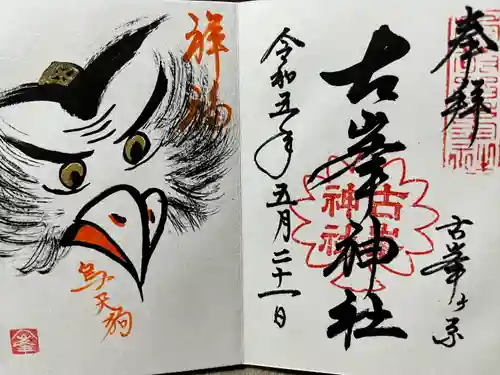 奉拝
古峯ヶ原
古峯神社
令和五年五月二十一日
祥福
烏天狗
古峯神社